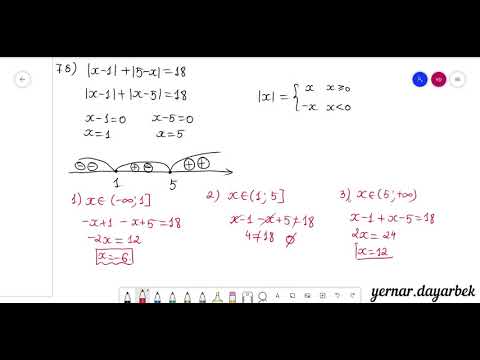 76) |x-1|+|5-x|=18
|x-1|+|x-5|=18
x-1=0 x-5=0
x=1 x=5
|x|={ x x≥0
-x x<0
⊖⊖ ⊕⊖ ⊕⊕
1 5
1) x∈(-∞;1]
-x+1-x+5=18
-2x=12
x=-6
2) x∈(1;5]
x-1-x+5=18
4≠18 ∅
3) x∈(5;+∞)
x-1+x-5=18
2x=24
x=12
yernar.dayarbek